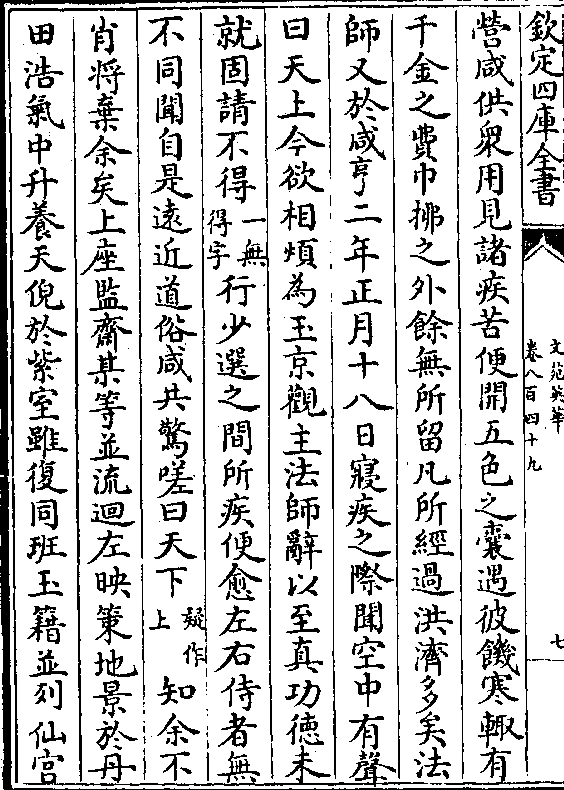 欽定四庫全書
文苑英華
卷八百四十九
七
營咸供衆用見諸疾苦便開五色之囊遇彼饑寒輙有
千金之費巾拂之外餘無所留凡所經過洪濟多矣法
師又於咸亨二年正月十八日寢疾之際聞空中有聲
曰天上今欲相煩為玉京觀主法師辭以至真功德未
就固請不得一無得字行少選之間所疾便愈左右侍者無
不同聞自是遠近道俗咸共驚嗟曰天下疑作上知余不
肖將棄余矣上座監齋某等並流迴左映策地景於丹
田浩氣中升養天倪於紫室雖復同班玉籍並列仙宫